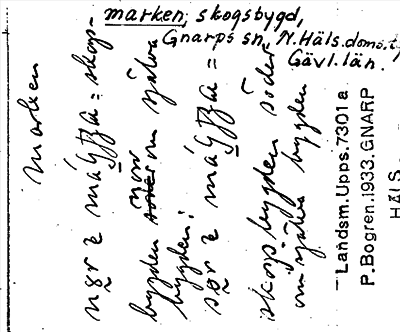 marken, skogsbygd,
Gnarps sn, N.Häls.doms.
Gävl. län.
marken
norr i = skogs-
bygden norr om själva
bygden;
sör i =
skogsbygden söder
om själva bygden
Landsm.Upps.7301a
P.Bogren.1933.GNARP
HÄLS.